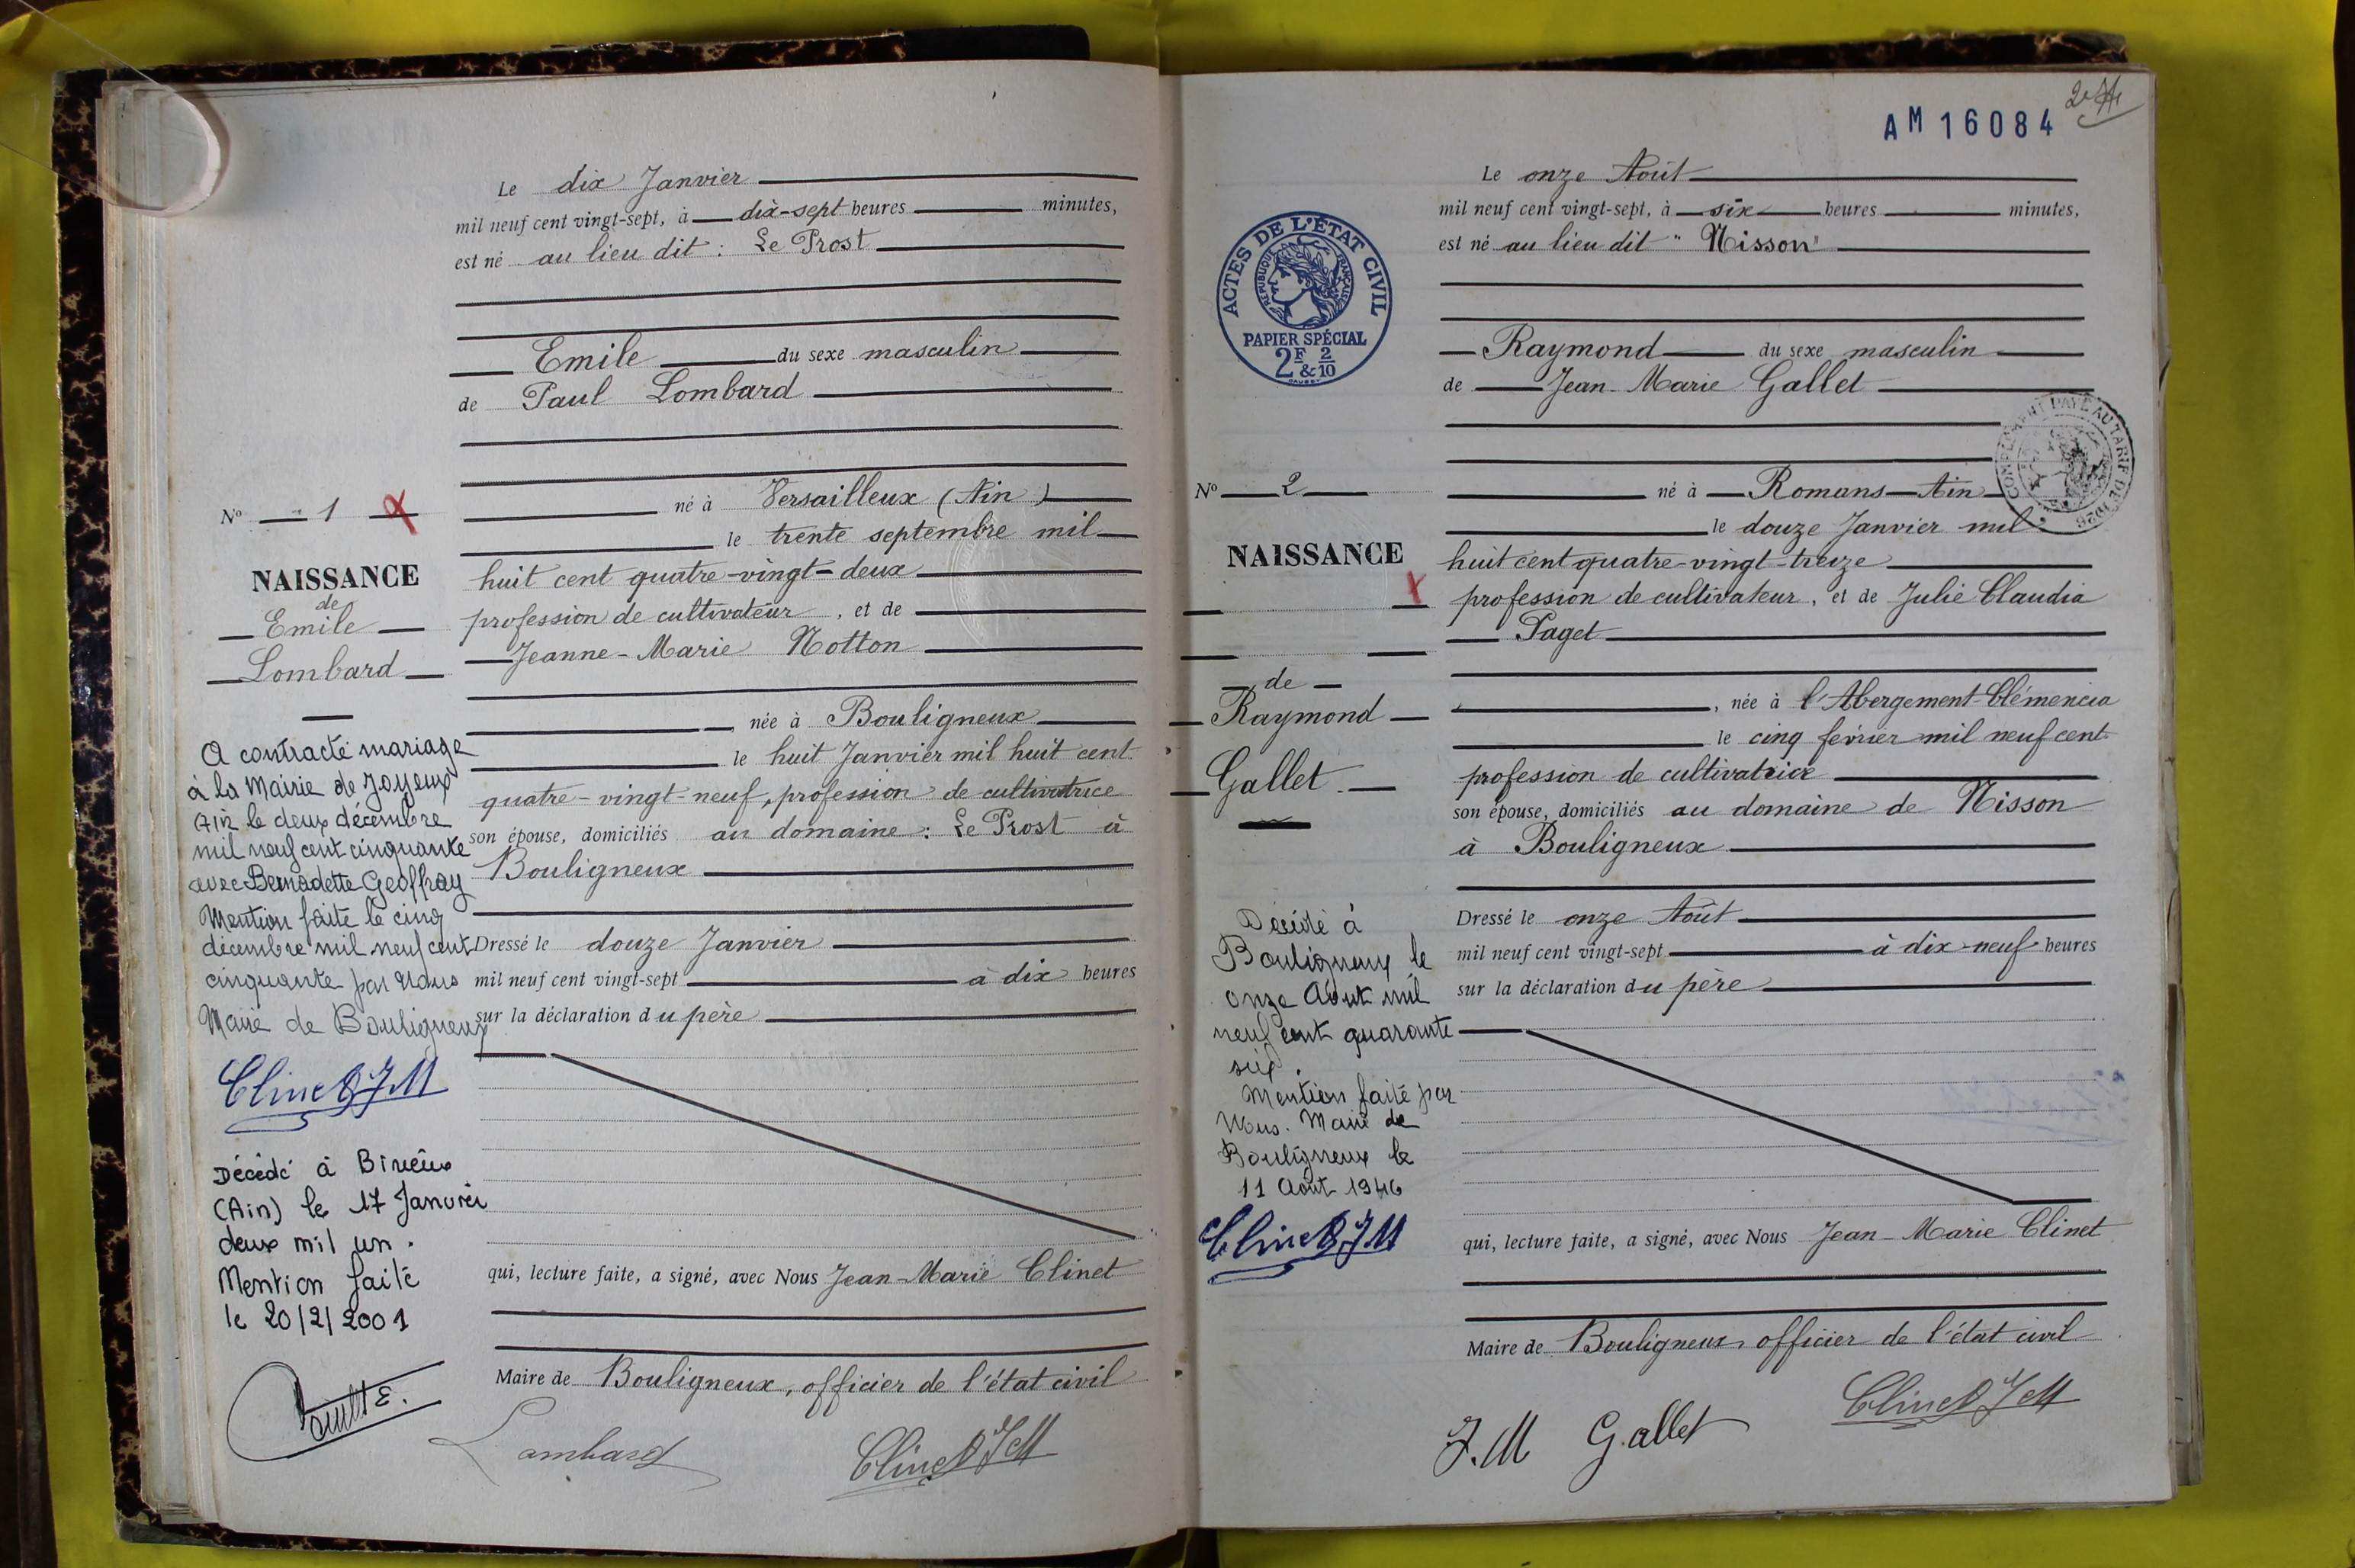 Le dix Janvier
mil neuf cent vingt-sept, à dix-sept heures minutes,
est né au lieu dit : Le Prost
Emile du sexe masculin
de Paul Lombard
né à Versailleux (Ain)
le trente septembre mil
huit cent quatre-vingt-deux
profession de cultivateur, et de
Jeanne-Marie Notton
née à Bouligneux
le huit Janvier mil huit cent
quatre-vingt-neuf, profession de cultivatrice
son épouse, domiciliés au domaine : Le Prost à
Bouligneux
Dressé le douze Janvier
mil neuf cent vingt-sept à dix heures
sur la déclaration du père
qui, lecture faite, a signé, avec Nous Jean-Marie Clinet
Maire de Bouligneux, officier de l'état civil
Lombard Clinet JM
No 1
NAISSANCE
de
Emile
Lombard
A contracté mariage
à la Mairie de Joyeux
Ain le deux décembre
mil neuf cent cinquante
avec Bernadette Geoffray
Mention faite le cinq
décembre mil neuf cent
cinquante par Nous
Maire de Bouligneux
Clinet JM
Décédé à Birieux
(Ain) le 17 Janvier
deux mil un.
Mention faite
le 20/2/2001
AM 16084
Le onze Août
mil neuf cent vingt-sept, à six heures minutes,
est né au lieu dit "Nisson"
Raymond du sexe masculin
de Jean-Marie Gallet
né à Romans Ain
le douze Janvier mil
huit cent quatre-vingt-treize
profession de cultivateur, et de Julie Claudia
Paget
, née à l'Abergement-Clémencia
le cinq février mil neuf cent
profession de cultivatrice
son épouse, domiciliés au domaine de Nisson
à Bouligneux
Dressé le onze Août
mil neuf cent vingt-sept à dix-neuf heures
sur la déclaration du père
qui, lecture faite, a signé, avec Nous Jean-Marie Clinet
Maire de Bouligneux, officier de l'état civil
J.M Gallet Clinet JM
ACTES DE L'ÉTAT CIVIL
RÉPUBLIQUE FRANÇAISE
PAPIER SPÉCIAL
2F & 2/10
COMPLÉMENT PAYÉ AU TARIF DE 1926
No 2
NAISSANCE
de
Raymond
Gallet
Décédé à
Bouligneux le
onze Août mil
neuf cent quarante
six.
Mention faite par
Nous. Maire de
Bouligneux le
11 Août 1946
Clinet JM